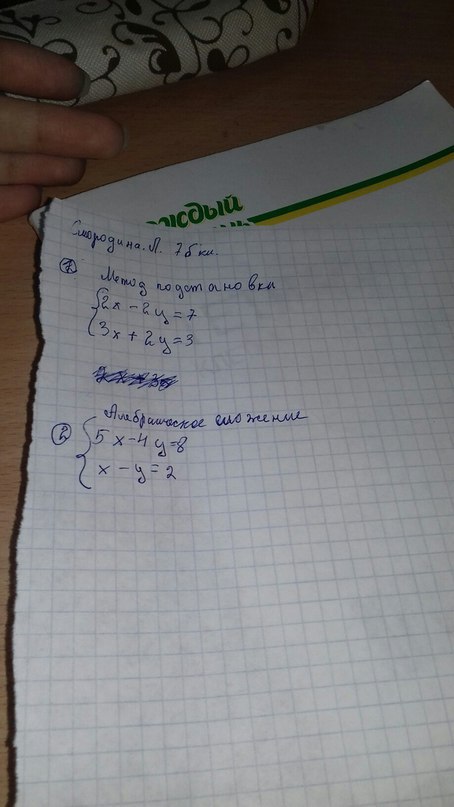 ждый
Смородина. Л. 7 б кл.
1 Метод подстановки
2x - 2y = 7
3x + 2y = 3
2 Алебраическое сложение
5x - 4y = 8
x - y = 2